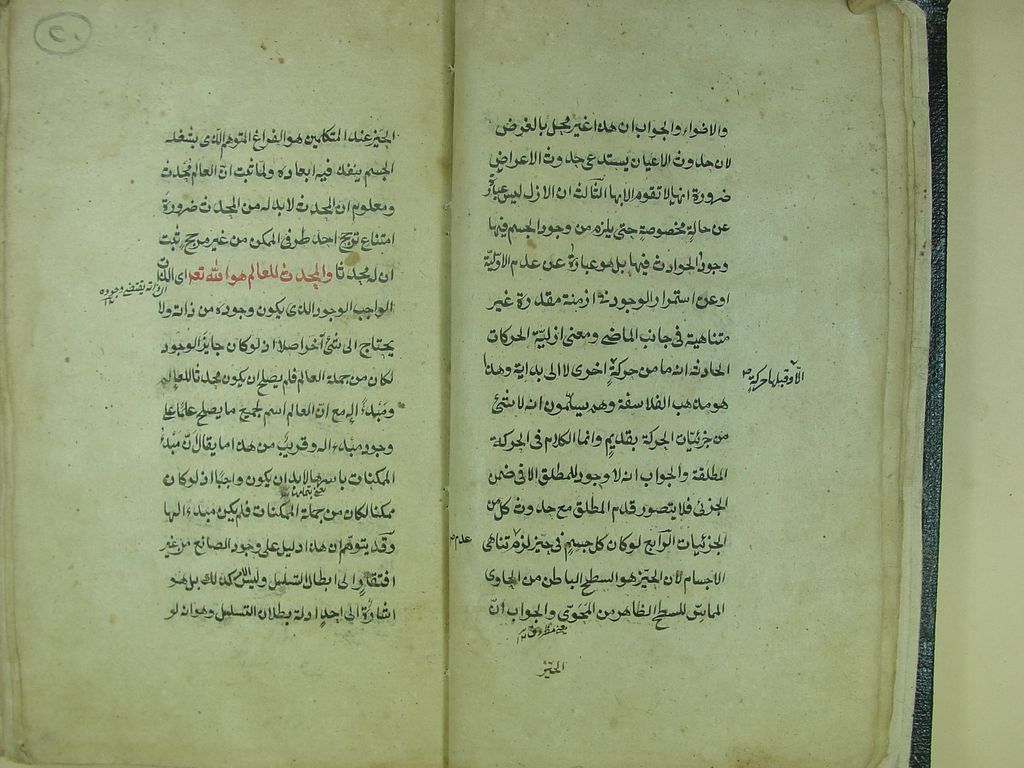 والاضواء والجواب ان هذا غير مخل بالغرض
لان حدوث الاعيان يستدعى حدوث الاعراض
ضرورة انها لا تقوم الا بها الثالث ان الازل ليس عبارة
عن حالة مخصوصة حتى يلزم من وجود الجسم فيها
وجود الحوادث فيها بل هو عبارة عن عدم الاولية
او عن استمرار الوجود فى ازمنة مقدرة غير
متناهية فى جانب الماضى ومعنى ازلية الحركات
الحادثه انه ما من حركة اخرى لا الى بداية وهذا
الا وقبلها حركة صح
هو مذهب الفلاسفة وهم يسلمون انه لا شئ
من جزئيات الحركة بقديم وانما الكلام فى الحركة
المطلقة والجواب انه لا وجود للمطلق الا فى ضمن
الجزئى فلا يتصور قدم المطلق مع حدوث كل من
الجزئيات الرابع لو كان كل جسم فى حيز لزم تناهى
عدم صح
الاجسام لان الحيز هو السطح الباطن من الحاوى
المماس للسطح الظاهر من المحوى والجواب ان
الحيز
٢٠
الحيز عند المتكلمين هو الفراغ المتوهم الذى يشغله
الجسم ينفذ فيه ابعاده ولما ثبت ان العالم محدث
ومعلوم ان المحدث لا بد له من المحدث ضرورة
امتناع ترجح احد طرفى الممكن من غير مرجح ثبت
ان له محدثا والمحدث للعالم هو الله تعہ اى الذات
الواجب الوجود الذى يكون وجوده من ذاته ولا
ان ذاته يقتضى وجوده
يحتاج الى شئ آخر اصلا اذ لو كان جايز الوجود
لكان من جملة العالم فلم يصلح ان يكون محدثا للعالم
ومبدءا له مع ان العالم اسم لجميع ما يصلح علما على
وجود مبدء له وقريب من هذا ما يقال ان مبدء
الممكنات باسرها لا بد ان يكون واجبا اذ لو كان
ممكنا لكان من جملة الممكنات فلم يكن مبدء لها
وقد يتوهم ان هذا دليل على وجود الصانع من غير
افتقار الى ابطال التسلسل وليس كذلك بل هو
اشارة الى احد ادلة بطلان التسلسل وهو انه لو